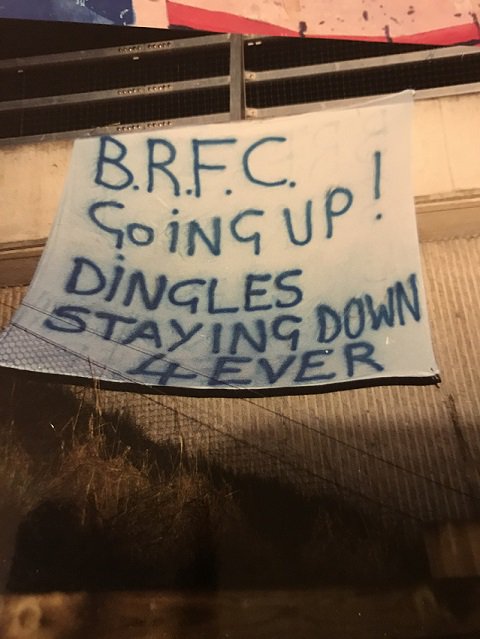 B.R.F.C.
GOiNG UP!
DiNGLES
STAYING DOWN
4EVER